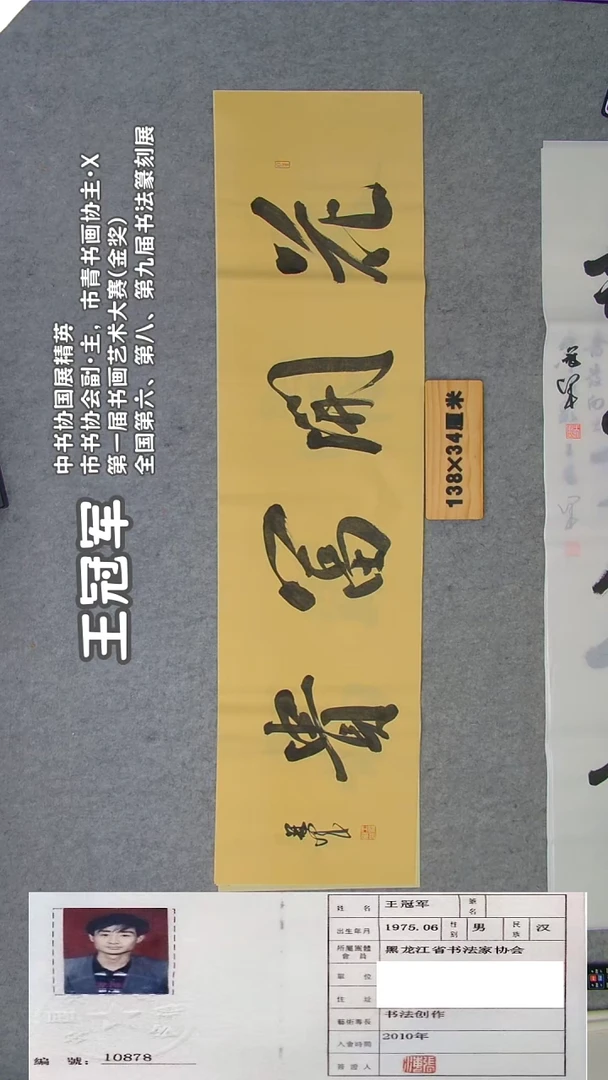 中书协国展精英
市书协会副·主，市青书画协主·X
第一届书画艺术大赛(金奖)
全国第六、第八、第九届书法篆刻展
王冠军
花開富貴
138×34厘米
姓 名 王冠军 筆名
出生年月 1975.06 性别 男 民族 汉
所屬團體會員 黑龙江省书法家协会
單 位
住 址
藝術專長 书法创作
入會時間 2010年
簽證人
編 號: 10878